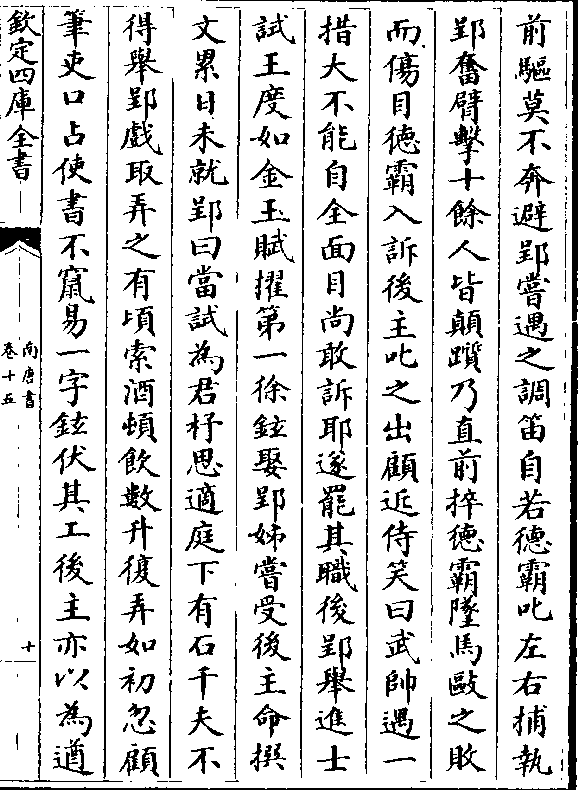 前驅莫不奔避郢嘗遇之調笛自若德霸叱左右捕執
郢奮臂擊十餘人皆顛躓乃直前捽德霸墜馬毆之敗
而傷目德霸入訴後主叱之出顧近侍笑曰武帥遇一
措大不能自全面目尚敢訴耶遂罷其職後郢舉進士
試王度如金玉賦擢第一徐鉉娶郢姊嘗受後主命撰
文累日未就郢曰當試為君杼思適庭下有石千夫不
得舉郢戲取弄之有頃索酒頓飲數升復弄如初忽顧
筆吏口占使書不竄易一字鉉伏其工後主亦以為遒
欽定四庫全書
南唐書
卷十五
十